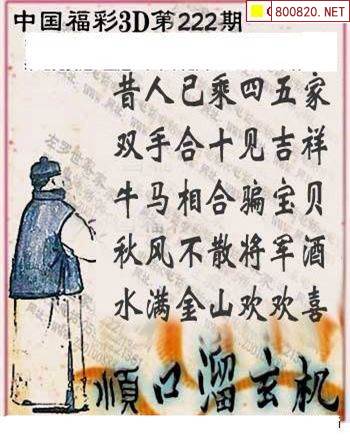 800820.NET
中国福彩3D第222期
昔人已乘四五家
双手合十见吉祥
牛马相合骗宝贝
秋风不散将军酒
水满金山欢欢喜
順口溜玄机